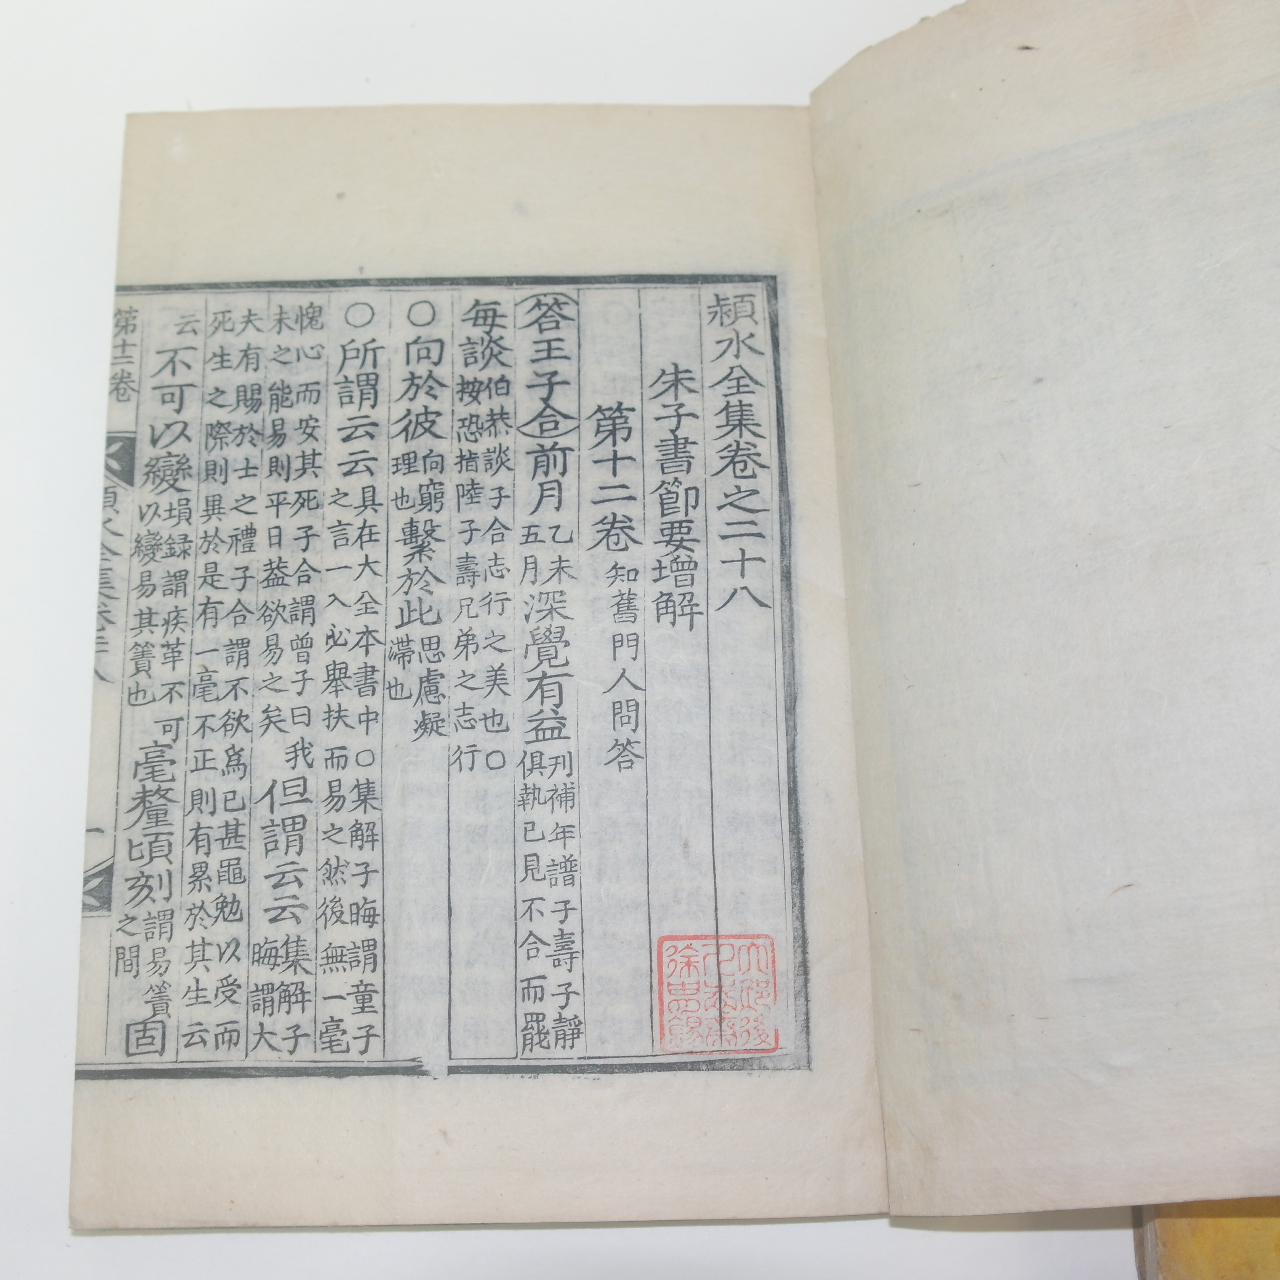 頴水全集卷之二十八
朱子書節要增解
第十二卷知舊門人問答
答王子合前月乙未五月深覺有益刊補年譜子壽子靜俱執已見不合而罷
每談伯恭談子合志行之美也○按恐指陸子壽兄弟之志行
○向於彼向窮理也繫於此思慮凝滯也
○所謂云云具在大全本書中○集解子晦謂童子之言一入必舉扶而易之然後無一毫
愧心而安其死子合謂曾子曰我未之能易則平日葢欲易之矣但謂云云集解子晦謂大
夫有賜於士之禮子合謂不欲爲已甚黽勉以受而死生之際則異於是有一毫不正則有累於其生云
云不可以變塤録謂疾革不可以變易其簀也毫釐頃刻謂易簀之間固
第十二卷
頴水全集卷二十八
一